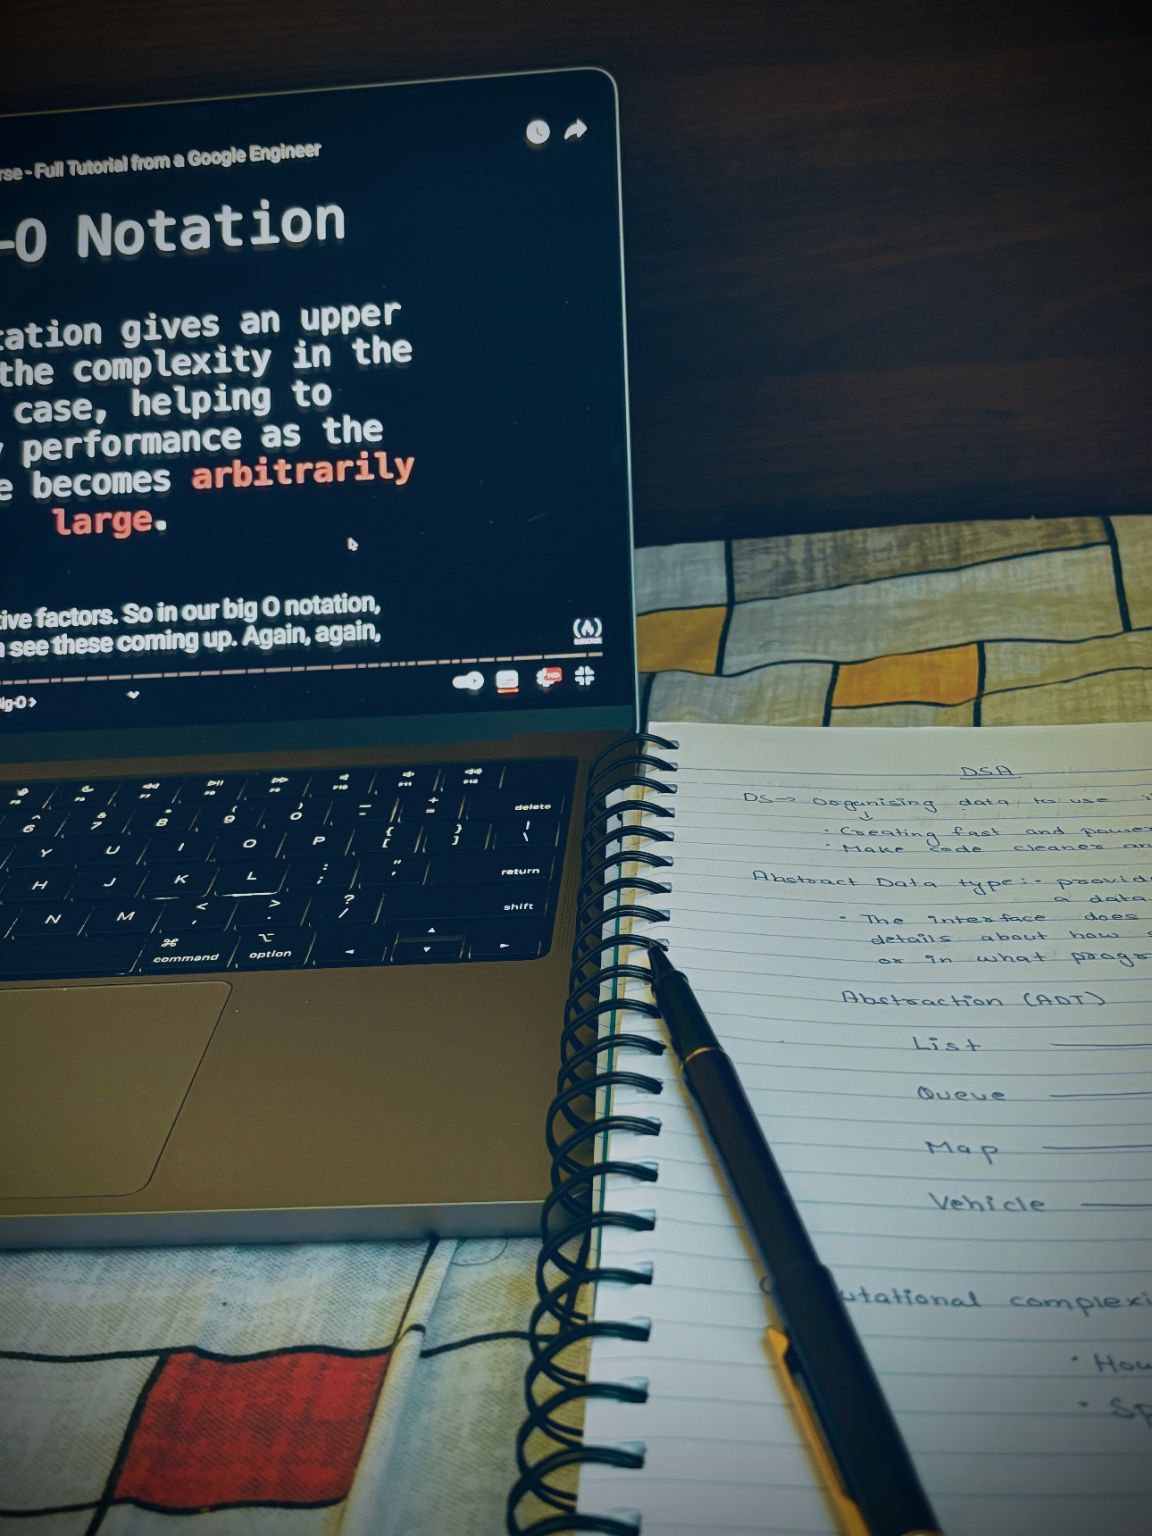 rse - Full Tutorial from a Google Engineer
-O Notation
tation gives an upper
the complexity in the
case, helping to
y performance as the
e becomes arbitrarily
large.
tive factors. So in our big O notation,
n see these coming up. Again, again,
Big-O >
HD
F10 F11 F12
^ 6 & 7 * 8 ( 9 ) 0 _ - + = delete
Y U I O P { [ } ] | \
H J K L : ; " ' return
N M < , > . ? / shift
⌘ command ⌥ option
DSA
DS → Organising data to use
· Creating fast and power
· Make code cleaner an
Abstract Data type:- provid
a data
· The interface does
details about how s
or in what progr
Abstraction (ADT)
List
Queue
Map
Vehicle
utational complexi
· How
· Sp